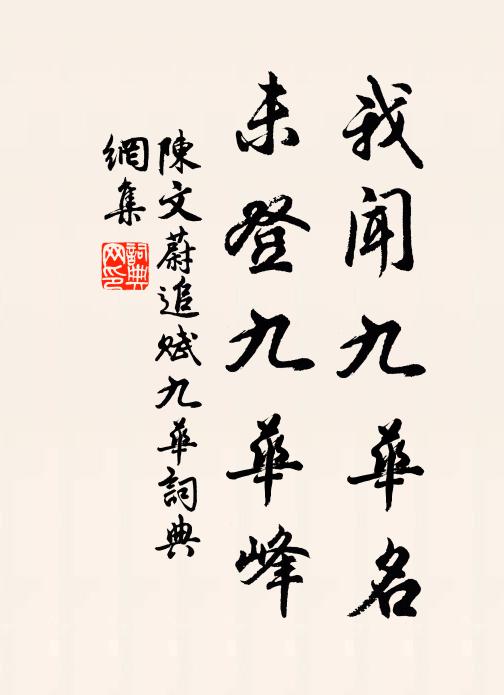 我聞九華名
未登九華峰
陳文蔚追賦九華詞典
網集
詞典网印